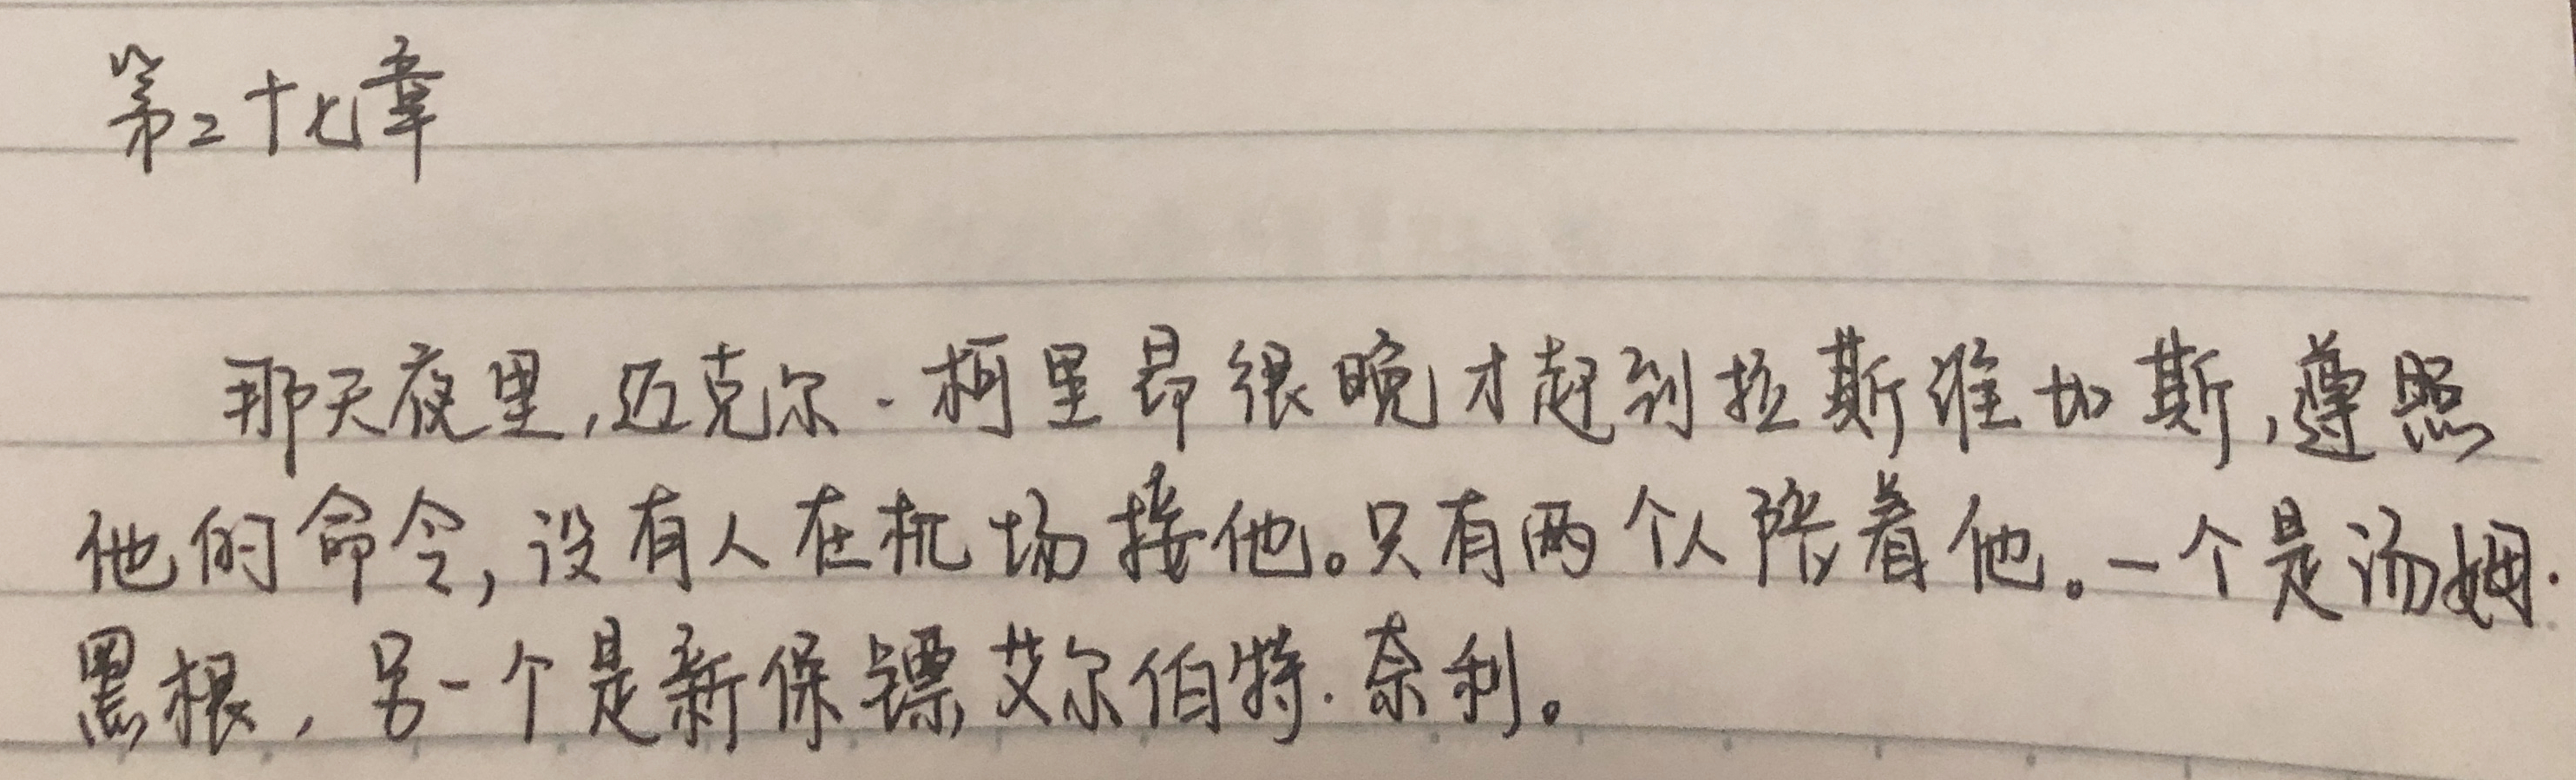 第二十七章
那天夜里,迈克尔·柯里昂很晚才赶到拉斯维加斯,遵照
他的命令,没有人在机场接他。只有两个人陪着他。一个是汤姆·
黑根,另一个是新保镖艾尔伯特·奈利。